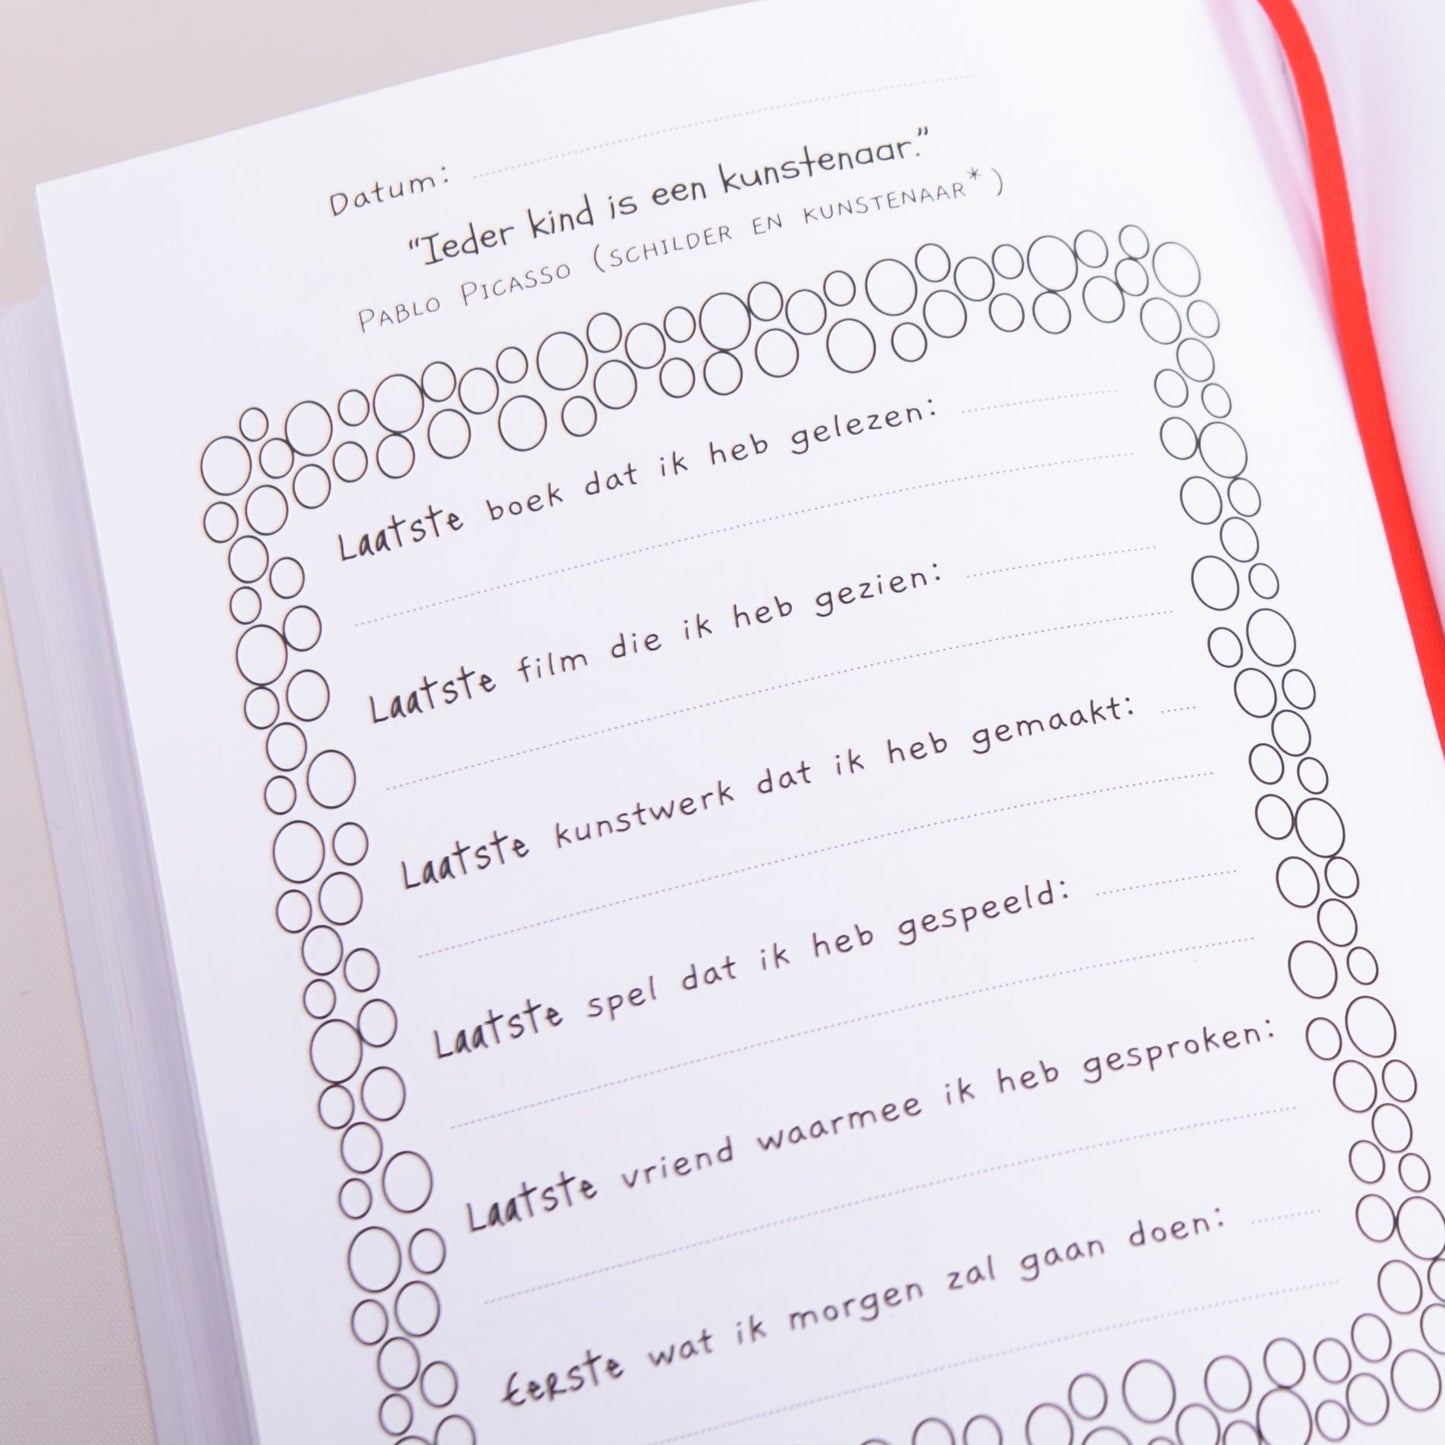 Datum:
“Ieder kind is een kunstenaar.”
Pablo Picasso (schilder en kunstenaar*)
Laatste boek dat ik heb gelezen:
Laatste film die ik heb gezien:
Laatste kunstwerk dat ik heb gemaakt:
Laatste spel dat ik heb gespeeld:
Laatste vriend waarmee ik heb gesproken:
Eerste wat ik morgen zal gaan doen: